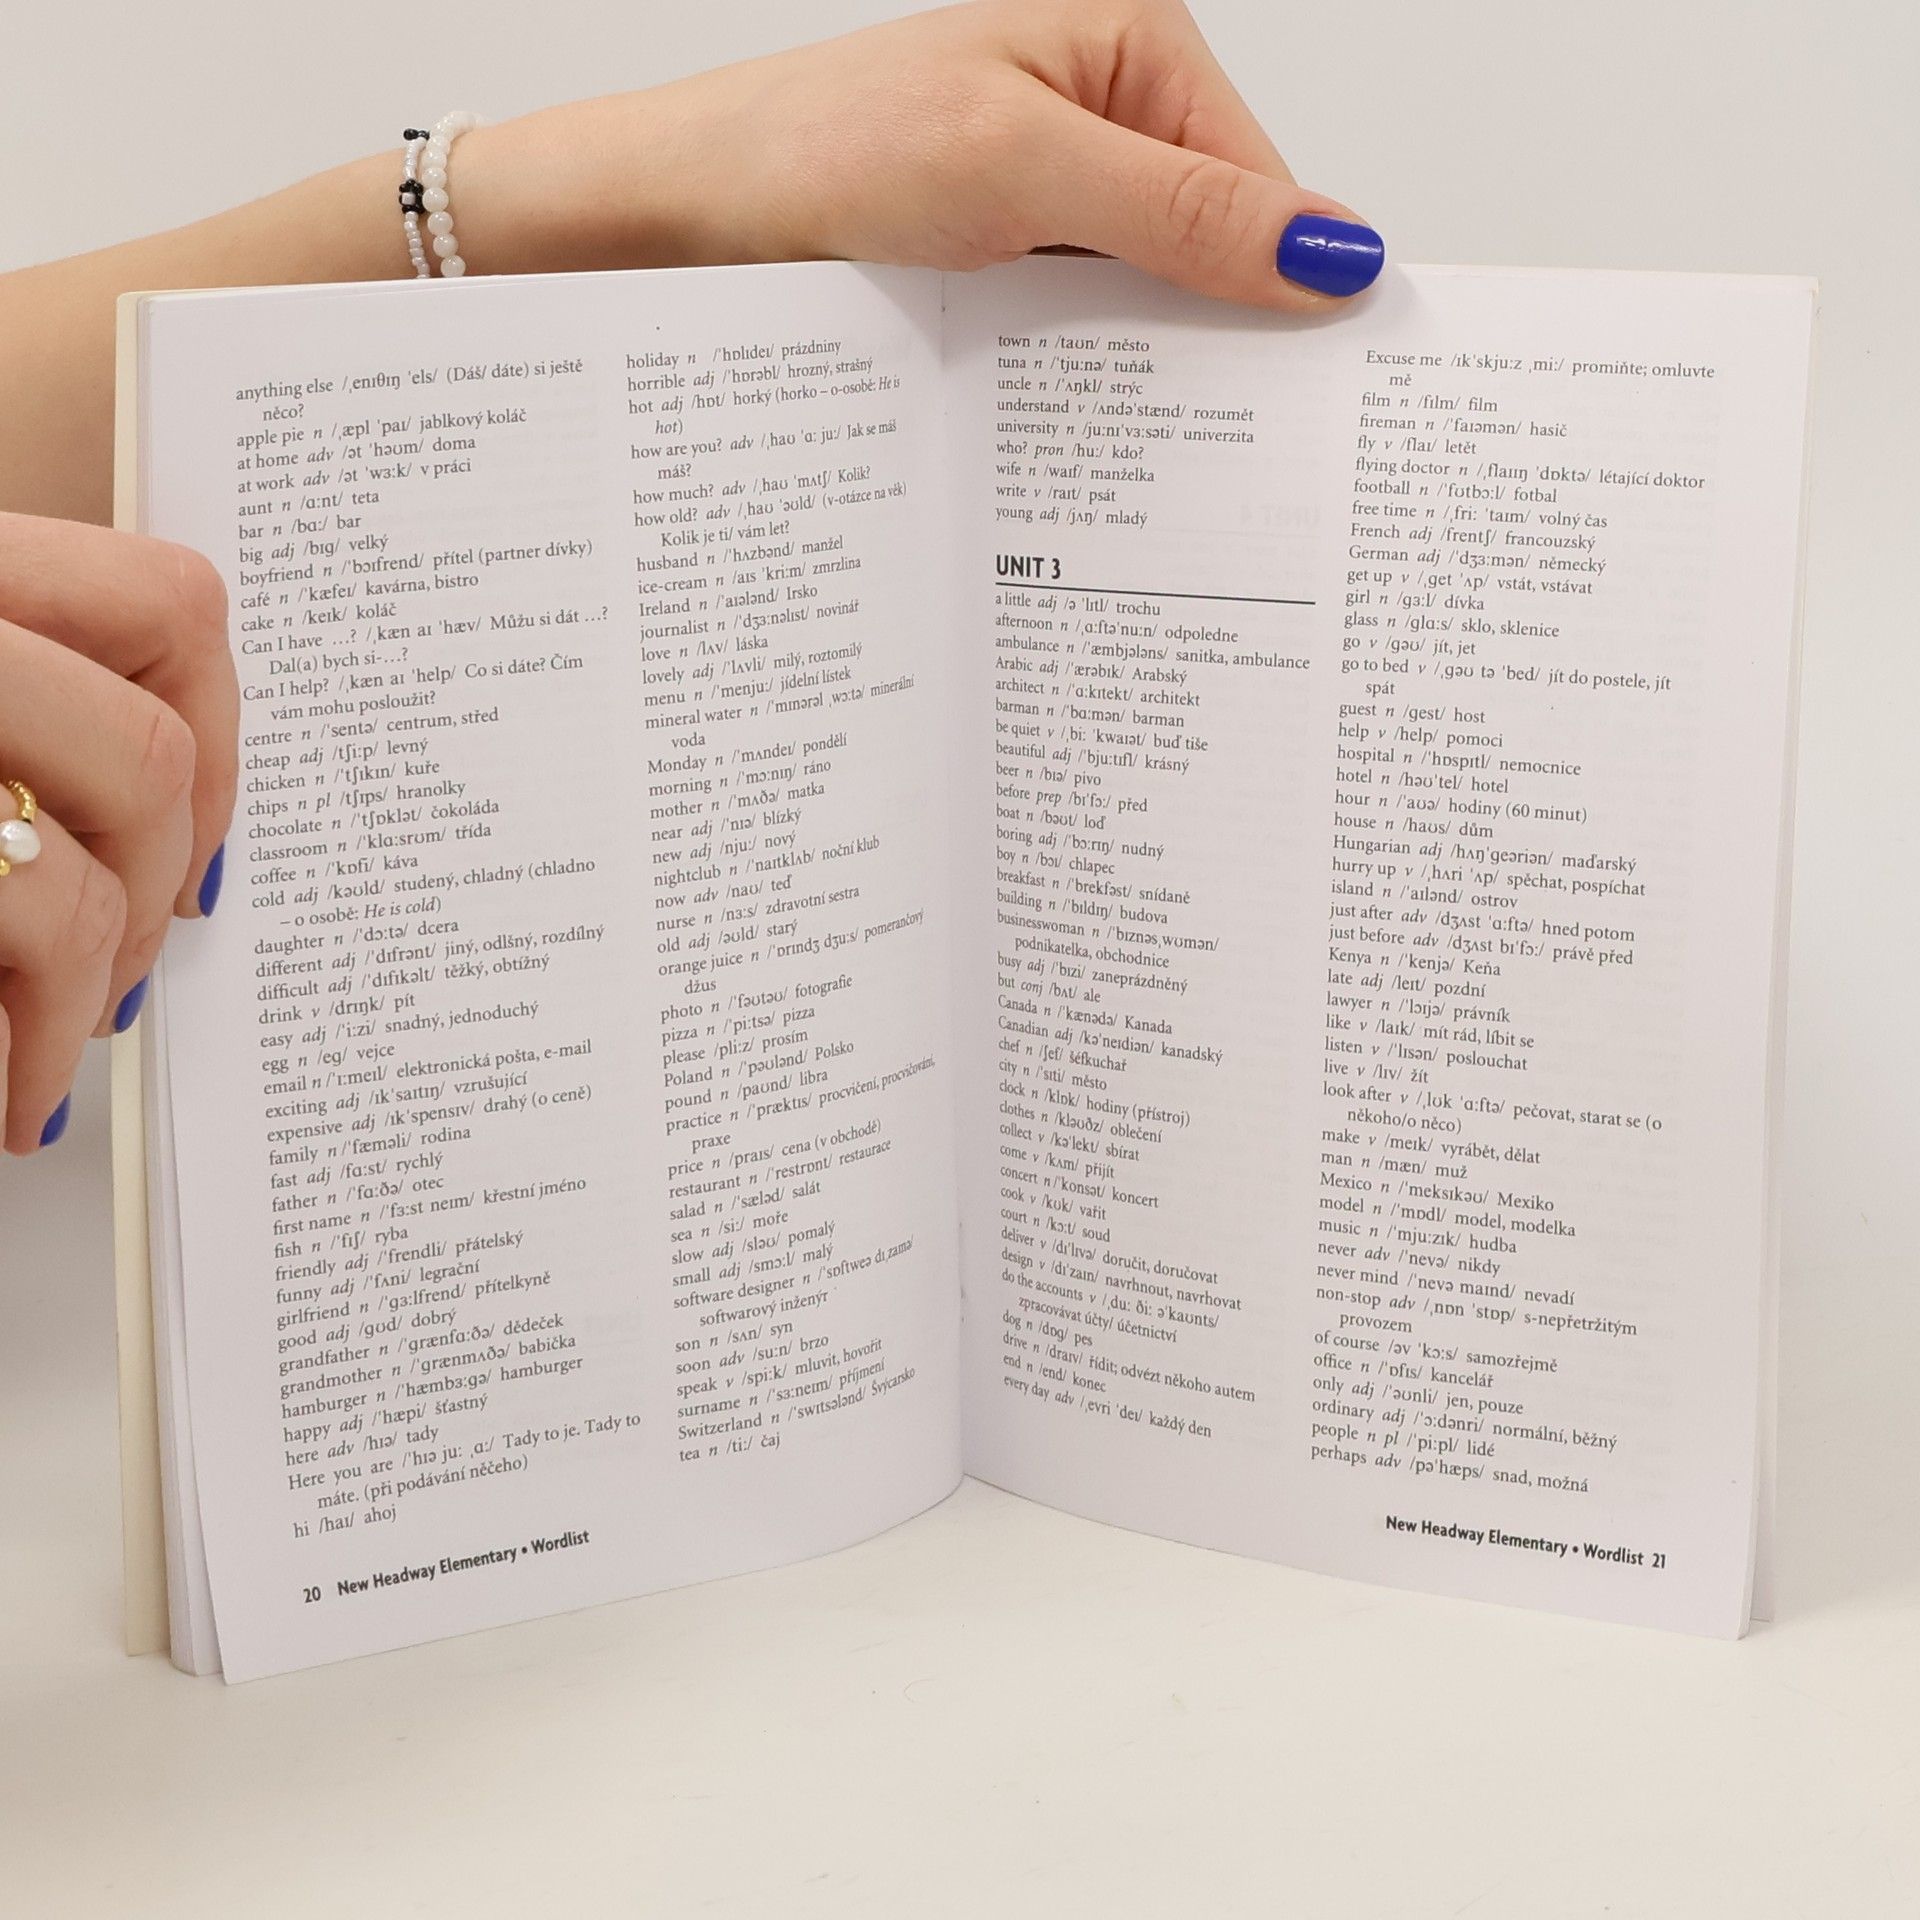 anything else /ˌenɪθɪŋ ˈels/ (Dáš/ dáte) si ještě
něco?
apple pie n /ˌæpl ˈpaɪ/ jablkový koláč
at home adv /ət ˈhəʊm/ doma
at work adv /ət ˈwɜːk/ v práci
aunt n /ɑːnt/ teta
bar n /bɑː/ bar
big adj /bɪg/ velký
boyfriend n /ˈbɔɪfrend/ přítel (partner dívky)
café n /ˈkæfeɪ/ kavárna, bistro
cake n /keɪk/ koláč
Can I have …? /ˌkæn aɪ ˈhæv/ Můžu si dát …?
Dal(a) bych si-…?
Can I help? /ˌkæn aɪ ˈhelp/ Co si dáte? Čím
vám mohu posloužit?
centre n /ˈsentə/ centrum, střed
cheap adj /tʃiːp/ levný
chicken n /ˈtʃɪkɪn/ kuře
chips n pl /tʃɪps/ hranolky
chocolate n /ˈtʃɒklət/ čokoláda
classroom n /ˈklɑːsrʊm/ třída
coffee n /ˈkɒfi/ káva
cold adj /kəʊld/ studený, chladný (chladno
– o osobě: He is cold)
daughter n /ˈdɔːtə/ dcera
different adj /ˈdɪfrənt/ jiný, odlšný, rozdílný
difficult adj /ˈdɪfɪkəlt/ těžký, obtížný
drink v /drɪŋk/ pít
easy adj /ˈiːzi/ snadný, jednoduchý
egg n /eg/ vejce
email n /ˈɪːmeɪl/ elektronická pošta, e-mail
exciting adj /ɪkˈsaɪtɪŋ/ vzrušující
expensive adj /ɪkˈspensɪv/ drahý (o ceně)
family n /ˈfæməli/ rodina
fast adj /fɑːst/ rychlý
father n /ˈfɑːðə/ otec
first name n /ˈfɜːst neɪm/ křestní jméno
fish n /ˈfɪʃ/ ryba
friendly adj /ˈfrendli/ přátelský
funny adj /ˈfʌni/ legrační
girlfriend n /ˈgɜːlfrend/ přítelkyně
good adj /gʊd/ dobrý
grandfather n /ˈgrænfɑːðə/ dědeček
grandmother n /ˈgrænmʌðə/ babička
hamburger n /ˈhæmbɜːgə/ hamburger
happy adj /ˈhæpi/ šťastný
here adv /hɪə/ tady
Here you are /ˈhɪə juː ˌɑː/ Tady to je. Tady to
máte. (při podávání něčeho)
hi /haɪ/ ahoj
20 New Headway Elementary • Wordlist
holiday n /ˈhɒlɪdeɪ/ prázdniny
horrible adj /ˈhɒrəbl/ hrozný, strašný
hot adj /hɒt/ horký (horko – o-osobě: He is
hot)
how are you? adv /ˌhaʊ ˈɑː juː/ Jak se máš
máš?
how much? adv /ˌhaʊ ˈmʌtʃ/ Kolik?
how old? adv /ˌhaʊ ˈəʊld/ (v-otázce na věk)
Kolik je ti/ vám let?
husband n /ˈhʌzbənd/ manžel
ice-cream n /aɪs ˈkriːm/ zmrzlina
Ireland n /ˈaɪələnd/ Irsko
journalist n /ˈdʒɜːnəlɪst/ novinář
love n /lʌv/ láska
lovely adj /ˈlʌvli/ milý, roztomilý
menu n /ˈmenjuː/ jídelní lístek
mineral water n /ˈmɪnərəl ˌwɔːtə/ minerální
voda
Monday n /ˈmʌndeɪ/ pondělí
morning n /ˈmɔːnɪŋ/ ráno
mother n /ˈmʌðə/ matka
near adj /ˈnɪə/ blízký
new adj /njuː/ nový
nightclub n /ˈnaɪtklʌb/ noční klub
now adv /naʊ/ teď
nurse n /nɜːs/ zdravotní sestra
old adj /əʊld/ starý
orange juice n /ˈɒrɪndʒ dʒuːs/ pomerančový
džus
photo n /ˈfəʊtəʊ/ fotografie
pizza n /ˈpiːtsə/ pizza
please /pliːz/ prosím
Poland n /ˈpəʊlənd/ Polsko
pound n /paʊnd/ libra
practice n /ˈpræktɪs/ procvičení, procvičování,
praxe
price n /praɪs/ cena (v obchodě)
restaurant n /ˈrestrɒnt/ restaurace
salad n /ˈsæləd/ salát
sea n /siː/ moře
slow adj /sləʊ/ pomalý
small adj /smɔːl/ malý
software designer n /ˈsɒftweə dɪˌzamə/
softwarový inženýr
son n /sʌn/ syn
soon adv /suːn/ brzo
speak v /spiːk/ mluvit, hovořit
surname n /ˈsɜːneɪm/ příjmení
Switzerland n /ˈswɪtsələnd/ Švýcarsko
tea n /tiː/ čaj
town n /taʊn/ město
tuna n /ˈtjuːnə/ tuňák
uncle n /ˈʌŋkl/ strýc
understand v /ʌndəˈstænd/ rozumět
university n /juːnɪˈvɜːsəti/ univerzita
who? pron /huː/ kdo?
wife n /waɪf/ manželka
write v /raɪt/ psát
young adj /jʌŋ/ mladý
UNIT 3
a little adj /ə ˈlɪtl/ trochu
afternoon n /ˌɑːftəˈnuːn/ odpoledne
ambulance n /ˈæmbjələns/ sanitka, ambulance
Arabic adj /ˈærəbɪk/ Arabský
architect n /ˈɑːkɪtekt/ architekt
barman n /ˈbɑːmən/ barman
be quiet v /ˌbiː ˈkwaɪət/ buď tiše
beautiful adj /ˈbjuːtɪfl/ krásný
beer n /bɪə/ pivo
before prep /bɪˈfɔː/ před
boat n /bəʊt/ loď
boring adj /ˈbɔːrɪŋ/ nudný
boy n /bɔɪ/ chlapec
breakfast n /ˈbrekfəst/ snídaně
building n /ˈbɪldɪŋ/ budova
businesswoman n /ˈbɪznəsˌwʊmən/
podnikatelka, obchodnice
busy adj /ˈbɪzi/ zaneprázdněný
but conj /bʌt/ ale
Canada n /ˈkænədə/ Kanada
Canadian adj /kəˈneɪdiən/ kanadský
chef n /ʃef/ šéfkuchař
city n /ˈsɪti/ město
clock n /klɒk/ hodiny (přístroj)
clothes n /kləʊðz/ oblečení
collect v /kəˈlekt/ sbírat
come v /kʌm/ přijít
concert n /ˈkɒnsət/ koncert
cook v /kʊk/ vařit
court n /kɔːt/ soud
deliver v /dɪˈlɪvə/ doručit, doručovat
design v /dɪˈzaɪn/ navrhnout, navrhovat
do the accounts v /ˌduː ðiː əˈkaʊnts/
zpracovávat účty/ účetnictví
dog n /dɒg/ pes
drive n /draɪv/ řídit; odvézt někoho autem
end n /end/ konec
every day adv /ˌevri ˈdeɪ/ každý den
Excuse me /ɪkˈskjuːz ˌmiː/ promiňte; omluvte
mě
film n /fɪlm/ film
fireman n /ˈfaɪəmən/ hasič
fly v /flaɪ/ letět
flying doctor n /ˌflaɪɪŋ ˈdɒktə/ létající doktor
football n /ˈfʊtbɔːl/ fotbal
free time n /ˌfriː ˈtaɪm/ volný čas
French adj /frentʃ/ francouzský
German adj /ˈdʒɜːmən/ německý
get up v /ˌget ˈʌp/ vstát, vstávat
girl n /gɜːl/ dívka
glass n /glɑːs/ sklo, sklenice
go v /gəʊ/ jít, jet
go to bed v /ˌgəʊ tə ˈbed/ jít do postele, jít
spát
guest n /gest/ host
help v /help/ pomoci
hospital n /ˈhɒspɪtl/ nemocnice
hotel n /həʊˈtel/ hotel
hour n /ˈaʊə/ hodiny (60 minut)
house n /haʊs/ dům
Hungarian adj /hʌŋˈgeəriən/ maďarský
hurry up v /ˌhʌri ˈʌp/ spěchat, pospíchat
island n /ˈaɪlənd/ ostrov
just after adv /dʒʌst ˈɑːftə/ hned potom
just before adv /dʒʌst bɪˈfɔː/ právě před
Kenya n /ˈkenjə/ Keňa
late adj /leɪt/ pozdní
lawyer n /ˈlɔɪjə/ právník
like v /laɪk/ mít rád, líbit se
listen v /ˈlɪsən/ poslouchat
live v /lɪv/ žít
look after v /ˌlʊk ˈɑːftə/ pečovat, starat se (o
někoho/o něco)
make v /meɪk/ vyrábět, dělat
man n /mæn/ muž
Mexico n /ˈmeksɪkəʊ/ Mexiko
model n /ˈmɒdl/ model, modelka
music n /ˈmjuːzɪk/ hudba
never adv /ˈnevə/ nikdy
never mind /ˈnevə maɪnd/ nevadí
non-stop adv /ˌnɒn ˈstɒp/ s-nepřetržitým
provozem
of course /əv ˈkɔːs/ samozřejmě
office n /ˈɒfɪs/ kancelář
only adj /ˈəʊnli/ jen, pouze
ordinary adj /ˈɔːdənri/ normální, běžný
people n pl /ˈpiːpl/ lidé
perhaps adv /pəˈhæps/ snad, možná
New Headway Elementary • Wordlist 21